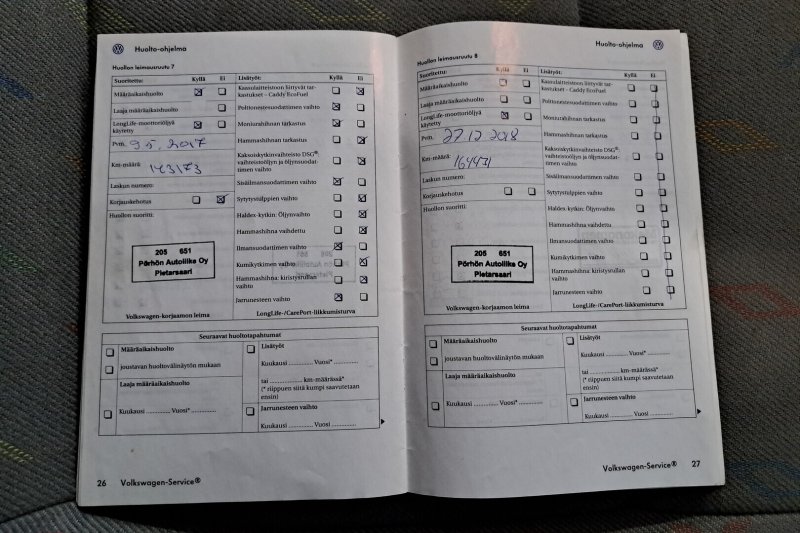 Huolto-ohjelma
Huollon leimausruutu 7
Suoritettu: Kyllä Ei
Määräaikaishuolto
Laaja määräaikaishuolto
LongLife-moottoriöljyä
käytetty
Pvm. 9.5.2017
Km-määrä 143173
Laskun numero:
Korjauskehotus
Huollon suoritti:
205 651
Pörhön Autoliike Oy
Pietarsaari
Volkswagen-korjaamon leima
Lisätyöt: Kyllä Ei
Kaasulaitteistoon liittyvät tar-
kastukset – Caddy EcoFuel
Polttonestesuodattimen vaihto
Moniurahihnan tarkastus
Hammashihnan tarkastus
Kaksoiskytkinvaihteisto DSG®:
vaihteistoöljyn ja öljynsuodat-
timen vaihto
Sisäilmansuodattimen vaihto
Sytytystulppien vaihto
Haldex-kytkin: Öljynvaihto
Hammashihna vaihdettu
Ilmansuodattimen vaihto
Kumikytkimen vaihto
Hammashihna: kiristysrullan
vaihto
Jarrunesteen vaihto
LongLife-/CarePort-liikkumisturva
Seuraavat huoltotapahtumat
Määräaikaishuolto
joustavan huoltovälinäytön mukaan
Laaja määräaikaishuolto
Kuukausi ............. Vuosi* ................
Lisätyöt
Kuukausi ............. Vuosi* ...............
tai ..................... km-määrässä*
(* riippuen siitä kumpi saavutetaan
ensin)
Jarrunesteen vaihto
Kuukausi ............. Vuosi ...............
26 Volkswagen-Service®
Huolto-ohjelma
Huollon leimausruutu 8
Suoritettu: Kyllä Ei
Määräaikaishuolto
Laaja määräaikaishuolto
LongLife-moottoriöljyä
käytetty
Pvm. 27.12.2018
Km-määrä 164431
Laskun numero:
Korjauskehotus
Huollon suoritti:
205 651
Pörhön Autoliike Oy
Pietarsaari
Volkswagen-korjaamon leima
Lisätyöt: Kyllä Ei
Kaasulaitteistoon liittyvät tar-
kastukset – Caddy EcoFuel
Polttonestesuodattimen vaihto
Moniurahihnan tarkastus
Hammashihnan tarkastus
Kaksoiskytkinvaihteisto DSG®:
vaihteistoöljyn ja öljynsuodat-
timen vaihto
Sisäilmansuodattimen vaihto
Sytytystulppien vaihto
Haldex-kytkin: Öljynvaihto
Hammashihna vaihdettu
Ilmansuodattimen vaihto
Kumikytkimen vaihto
Hammashihna: kiristysrullan
vaihto
Jarrunesteen vaihto
LongLife-/CarePort-liikkumisturva
Seuraavat huoltotapahtumat
Määräaikaishuolto
joustavan huoltovälinäytön mukaan
Laaja määräaikaishuolto
Kuukausi ............. Vuosi* ................
Lisätyöt
Kuukausi ............. Vuosi* ...............
tai ..................... km-määrässä*
(* riippuen siitä kumpi saavutetaan
ensin)
Jarrunesteen vaihto
Kuukausi ............. Vuosi ...............
Volkswagen-Service® 27